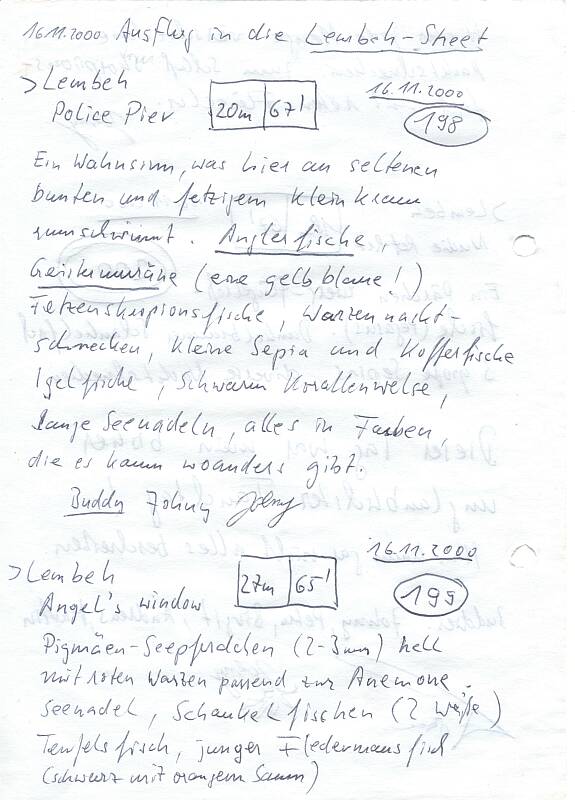 16.11.2000 Ausflug in die Lembeh-Street
> Lembeh
Police Pier
20m 67'
16.11.2000
198
Ein Wahnsinn, was hier an seltenen
bunten und fetzigem Kleinkram
rumschwimmt. Anglerfische,
Geistermuräne (eine gelb blaue!)
Fetzenskorpionsfische, Warzennackt-
schnecken, kleine Sepia und Kofferfische
Igelfische, Schwarm Korallenwelse,
lange Seenadeln, alles in Farben
die es kaum woanders gibt.
Buddy Johny
> Lembeh
Angel's window
27m 65'
16.11.2000
199
Pigmäen-Seepferdchen (2-3mm) hell
mit roten Warzen passend zur Anemone.
Seenadel, Schaukelfischen (2 weiße)
Teufelsfisch, junger Fledermausfisch
(schwarz mit orangem Saum)